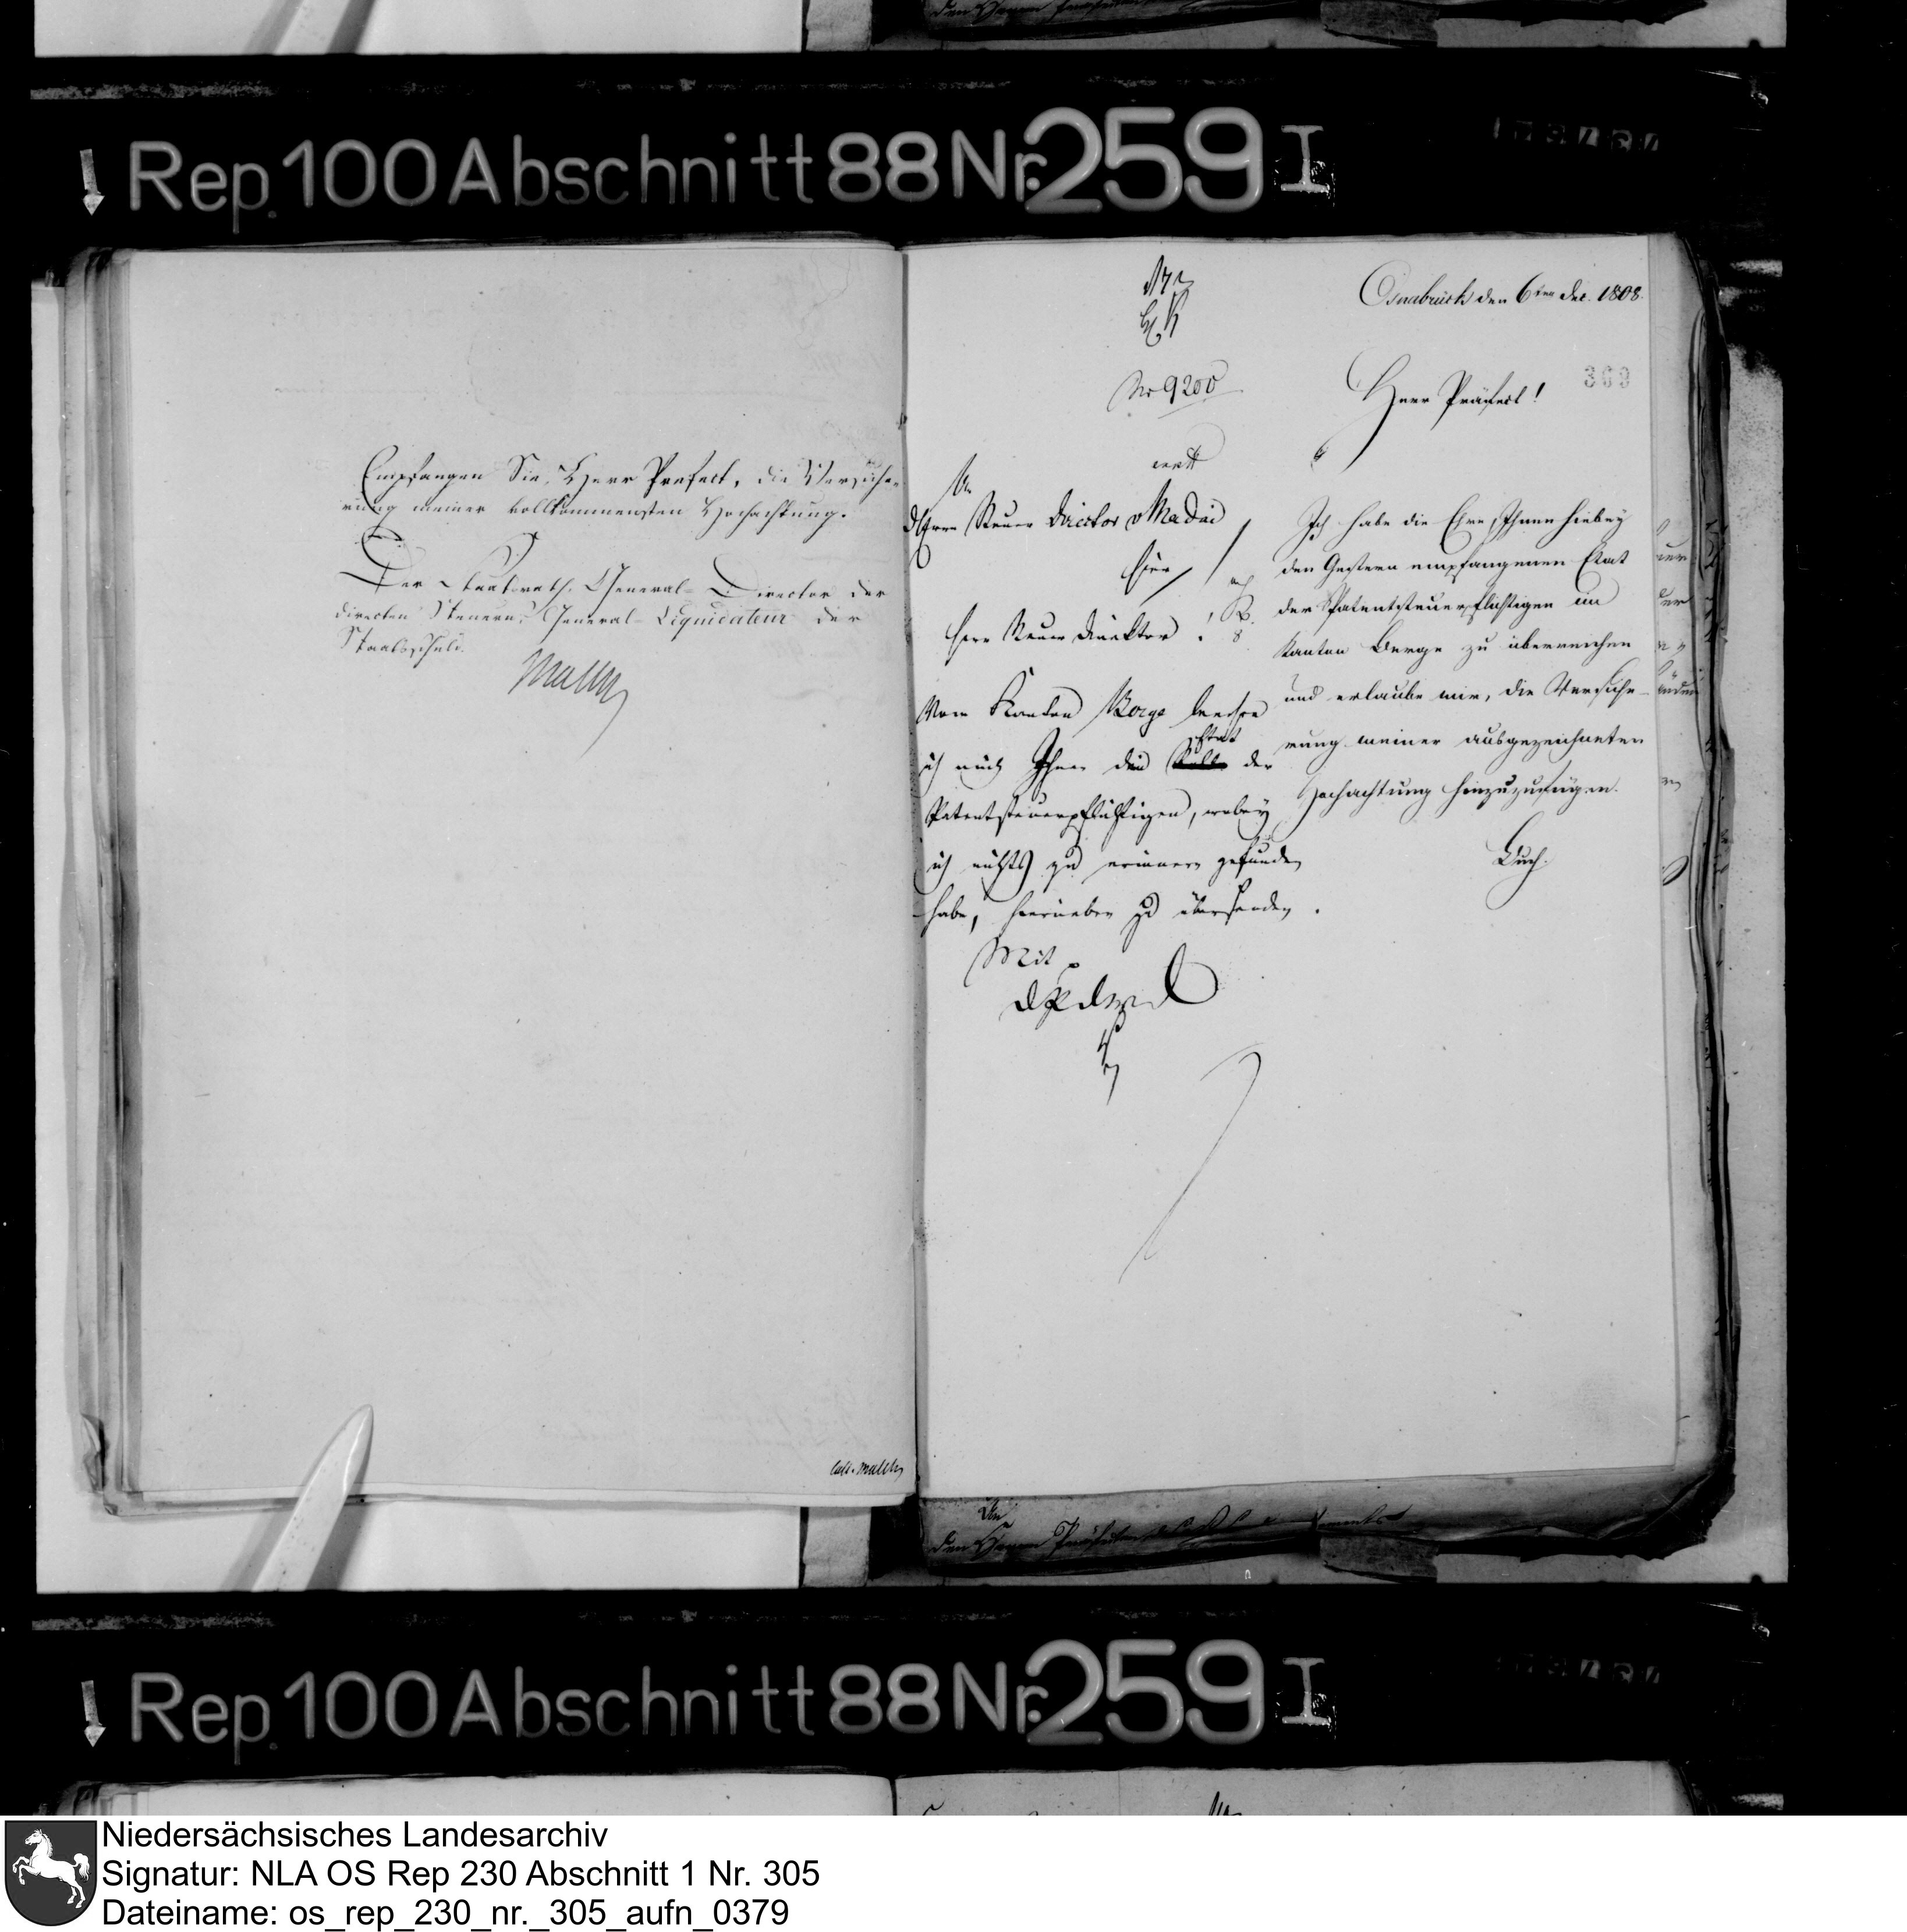 Rep. 100 Abschnitt 88 Nr. 259 I
Empfangen Sie, Herr Prefect, die Versiche-
rung meiner vollkommensten Hochachtung.
Der Staatsrath, General-Director der
directen Steuern, General-Liquidateur der
Staatsschuld.
Malchus
Call. Malchus
Osnabrück den 6ten Dec. 1808.
369
No 9200
Herr Präfect!
Ich habe die Ehre, Ihnen hiebey
den Gestern empfangenen Etat
der Patentsteuerpflichtigen im
Kanton Berge zu überreichen
und erlaube mir, die Versiche-
rung meiner ausgezeichneten
Hochachtung hinzuzufügen.
An
d Herrn Steuer Director v Madai
hier
Herr Steuer Direktor!
Vom Kanton Berge
ich mich Ihnen den Etat der
Patentsteuerpflichtigen, wobey
ich nichts zu erinnern gefunden
habe, hierneben zu übersenden.
Mit
An
den Herrn Präfecten
Rep. 100 Abschnitt 88 Nr. 259 I
Niedersächsisches Landesarchiv
Signatur: NLA OS Rep 230 Abschnitt 1 Nr. 305
Dateiname: os_rep_230_nr._305_aufn_0379